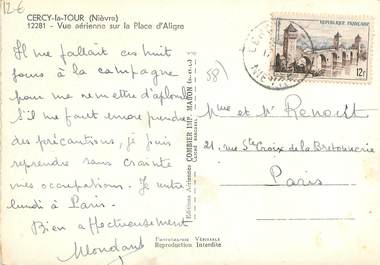 12€
CERCY-la-TOUR (Nièvre)
12281 - Vue aérienne sur la Place d'Aligre
Il me fallait ces huit
jours à la campagne
pour me remettre d'aplomb
S'il me faut encore prendre
des précautions, je puis
reprendre sans crainte
mes occupations. Je rentre
lundi à Paris.
Bien affectueusement
Mondane
Editions Aériennes COMBIER IMP. MACON
Photographie Véritable
Reproduction Interdite
58)
RÉPUBLIQUE FRANÇAISE
12F
Mme et Mr Renoult
21, rue Ste Croix de la Bretonnerie
Paris